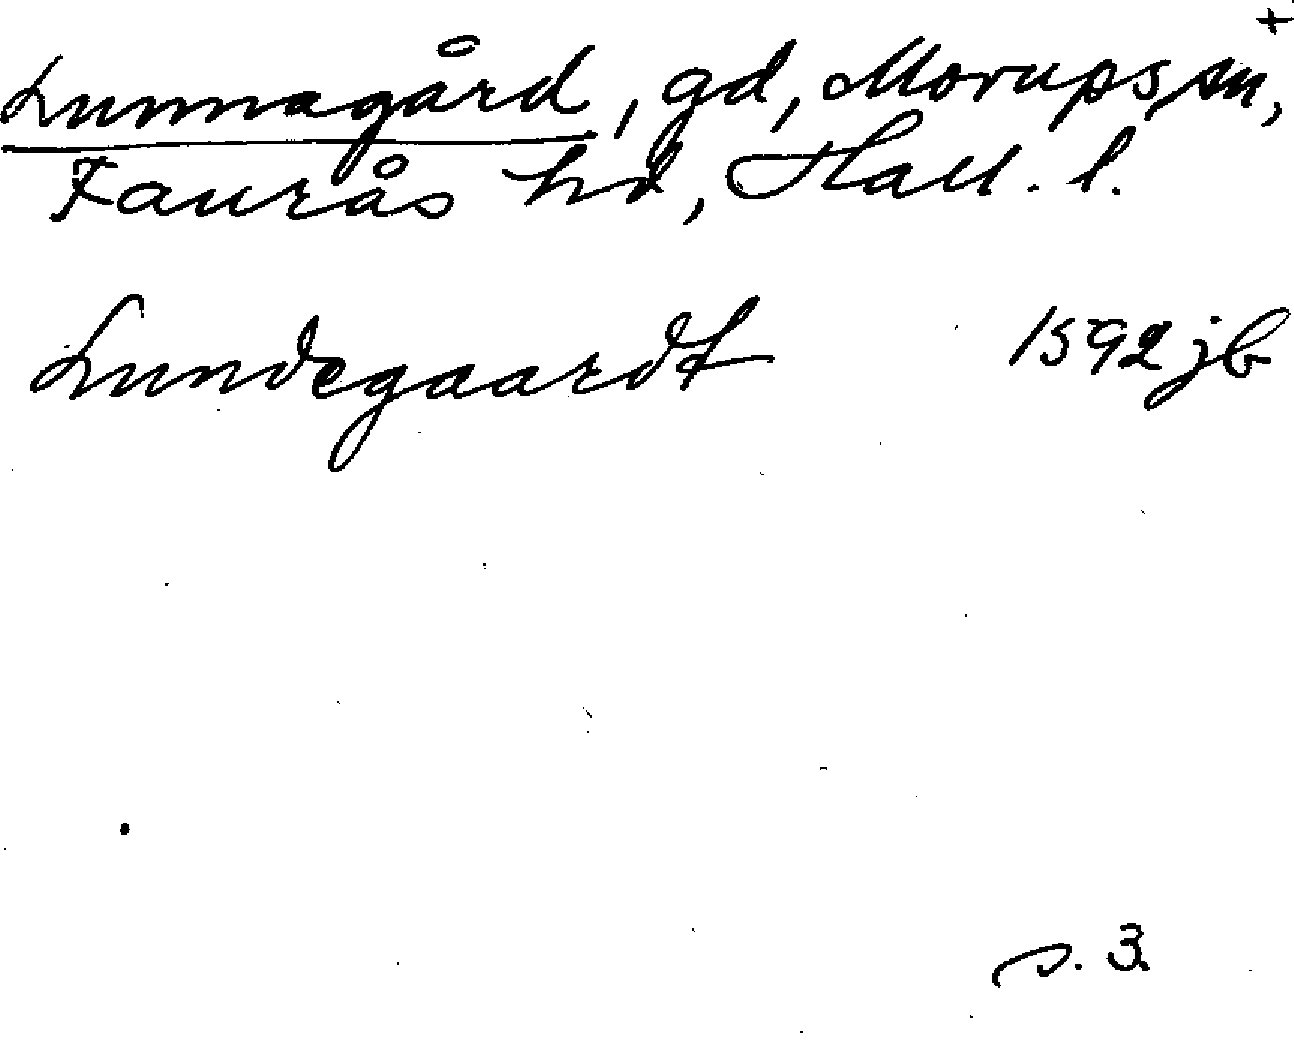 +
Lunnagård, gd, Morups sn,
Faurås hd, Hall. l.
Lundegaardt 1592 jb
s. 3.